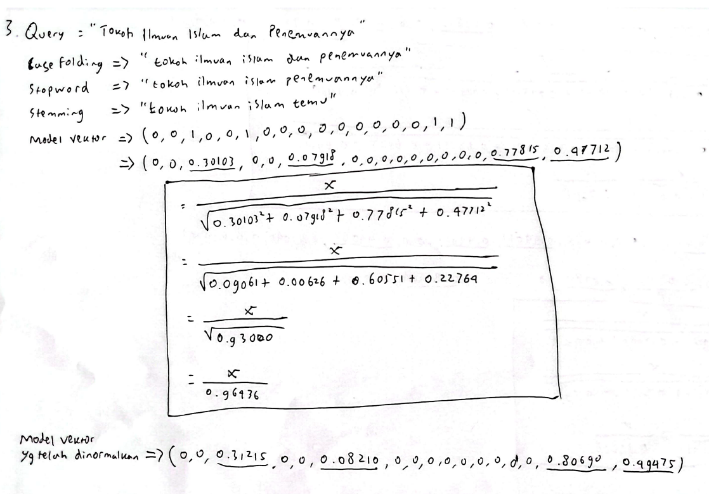 3. Query : "Tokoh Ilmuan Islam dan Penemuannya"
Case Folding => "tokoh ilmuan islam dan penemuannya"
Stopword => "tokoh ilmuan islam penemuannya"
Stemming => "tokoh ilmuan islam temu"
Model vektor => (0,0,1,0,0,1,0,0,0,0,0,0,0,0,0,1,1)
=> (0,0,0.30103,0,0,0.07918,0,0,0,0,0,0,0,0,0,0.77815,0.47712)
= x / √0.30103² + 0.07918² + 0.77815² + 0.47712²
= x / √0.09061 + 0.00626 + 0.60551 + 0.22764
= x / √0.93000
= x / 0.96436
Model vektor
yg telah dinormalkan => (0,0,0.31215,0,0,0.08210,0,0,0,0,0,0,0,0,0,0.80690,0.49475)